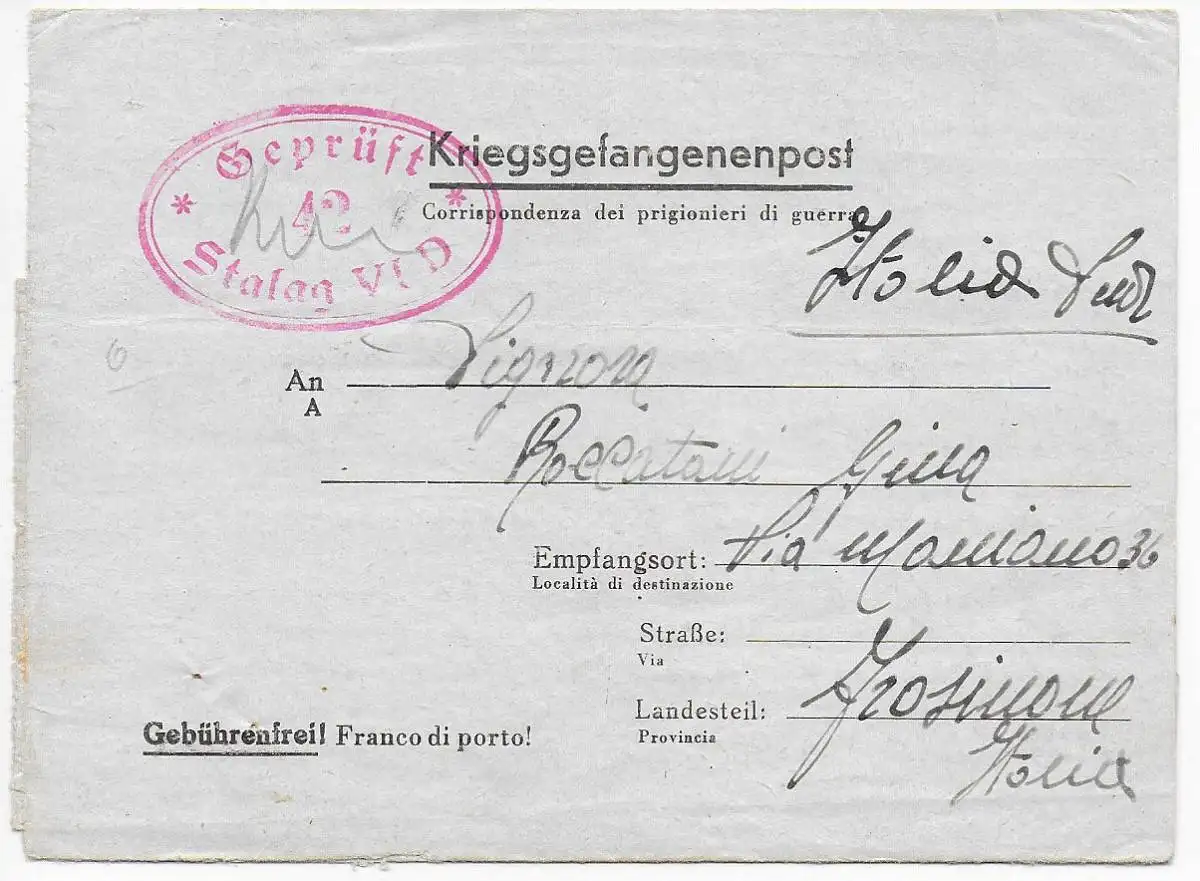 Geprüft
42
Stalag VI D
Kriegsgefangenenpost
Corrispondenza dei prigionieri di guerra
Italia Sud
An Signora
A
Gina
Empfangsort: Via 36
Località di destinazione
Straße:
Via
Landesteil: Frosinone
Provincia
Italia
Gebührenfrei! Franco di porto!
6